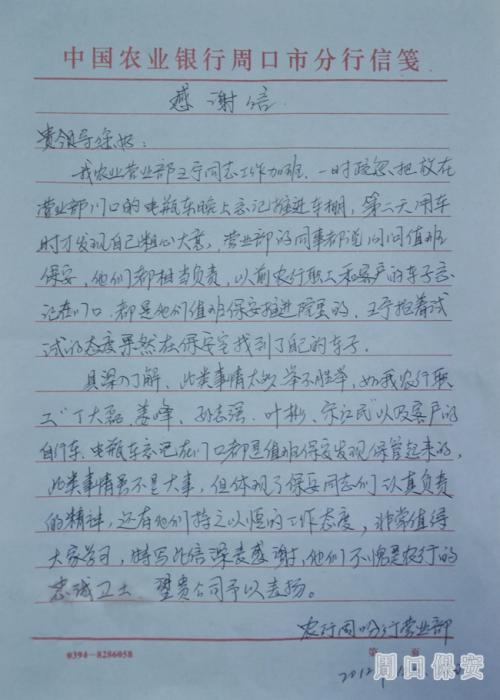 中国农业银行周口市分行信笺
感谢信
贵领导您好：
我农业营业部王宇同志工作加班，一时疏忽把放在
营业部门口的电瓶车晚上忘记推进车棚，第二天用车
时才发现自己粗心大意，营业部的同事都说问问值班
保安，他们都相当负责，以前农行职工和客户的车子忘
记在门口，都是他们值班保安推进院里的，王宇抱着试
试的态度果然在保安室找到了自己的车子。
具深刻了解，此类事情太多举不胜举，如我农行职
工"丁大磊、姜峰、孙志强、叶彬、宋江民"以及客户的
自行车、电瓶车忘记在门口都是值班保安发现保管起来的，
此类事情虽不是大事，但体现了保安同志们认真负责
的精神，还有他们持之以恒的工作态度，非常值得
大家学习，特写此信深表感谢，他们不愧是农行的
忠诚卫士，望贵公司予以表扬。
农行周口分行营业部
0394—8286058
第 页
2012
周口保安